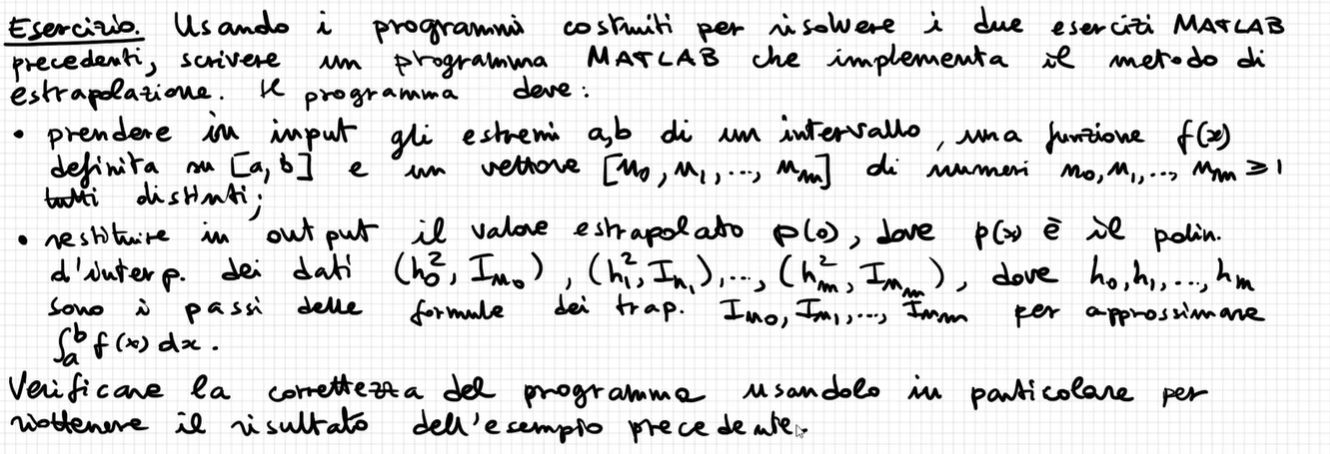 Esercizio. Usando i programmi costruiti per risolvere i due esercizi MATLAB
precedenti, scrivere un programma MATLAB che implementa il metodo di
estrapolazione. Il programma deve:
• prendere in input gli estremi a,b di un intervallo, una funzione f(x)
definita su [a,b] e un vettore [n₀, n₁, ..., nₘ] di numeri n₀, n₁, ..., nₘ ≥ 1
tutti distinti;
• restituire in output il valore estrapolato p(0), dove p(x) è il polin.
d'interp. dei dati (h₀², Iₙ₀), (h₁², Iₙ₁), ..., (hₘ², Iₙₘ), dove h₀, h₁, ..., hₘ
sono i passi delle formule dei trap. Iₙ₀, Iₙ₁, ..., Iₙₘ per approssimare
∫ₐᵇ f(x) dx.
Verificare la correttezza del programma usandolo in particolare per
riottenere il risultato dell'esempio precedente.